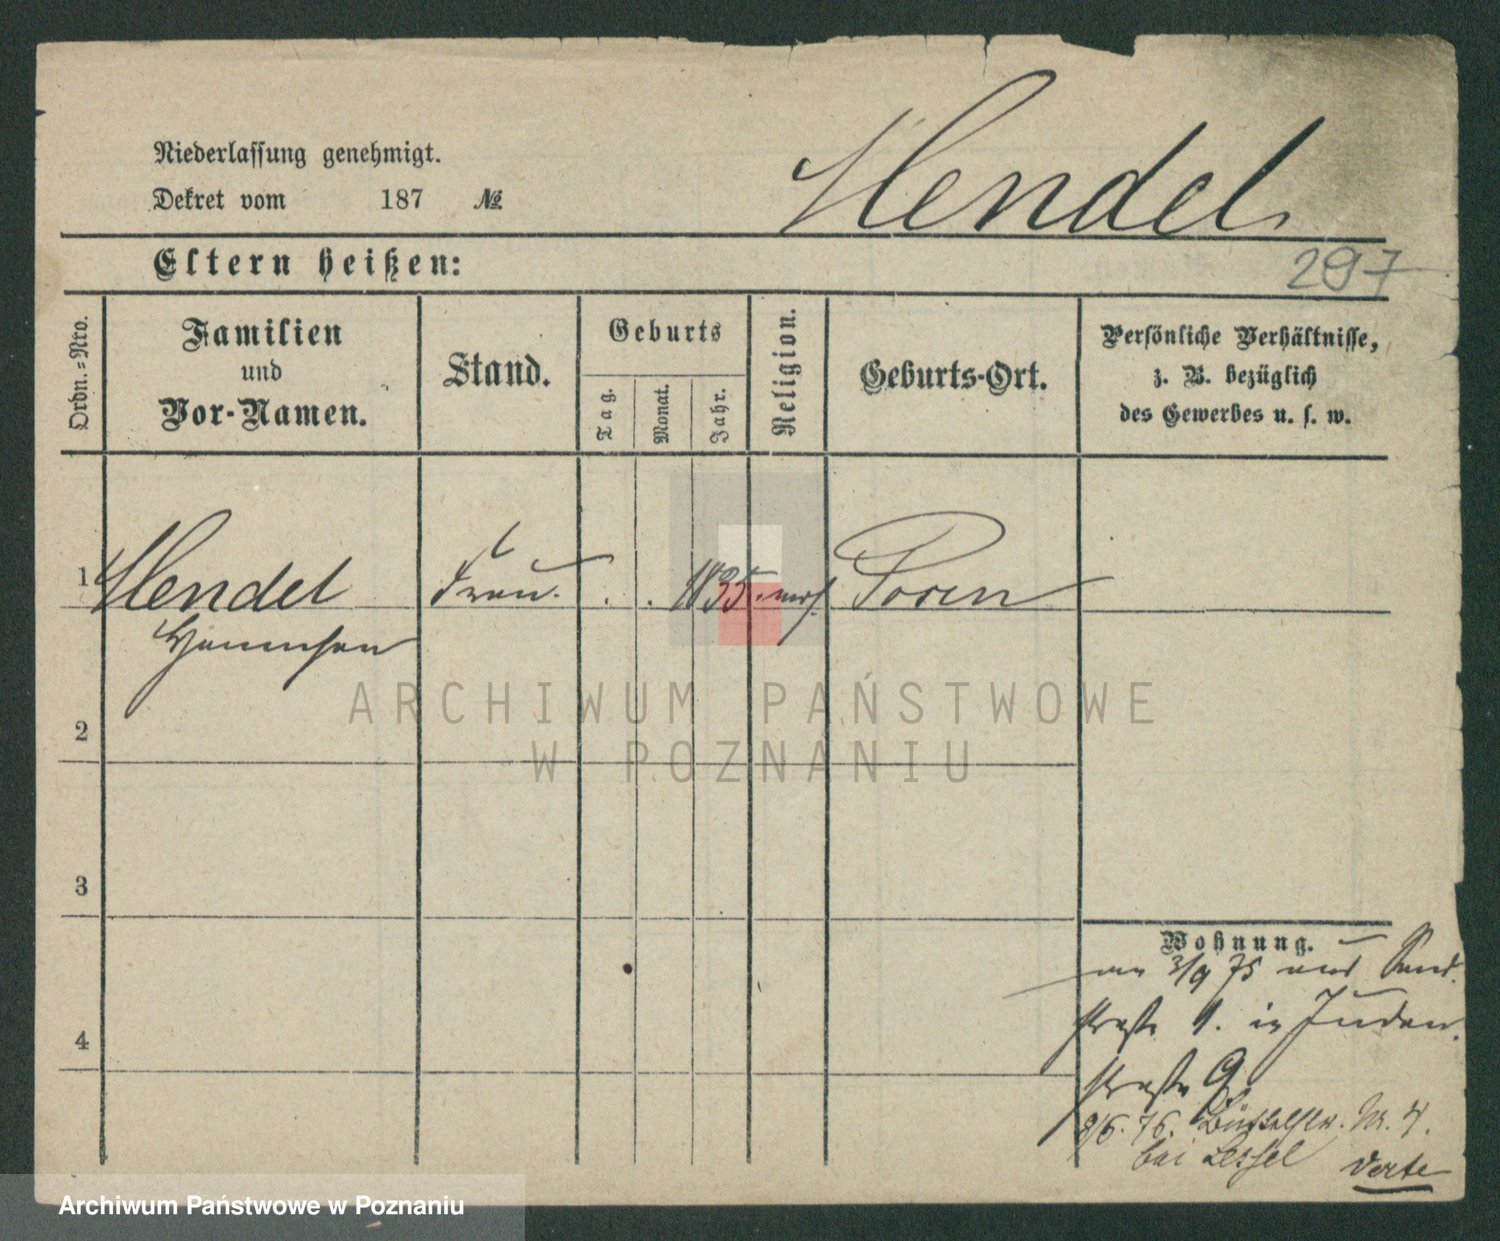 Hendel
Niederlassung genehmigt.
Dekret vom 187 №
Eltern heißen:
297
Ordn.-Nro.
Familien
und
Vor-Namen.
Stand.
Geburts
Tag.
Monat.
Jahr.
Religion.
Geburts-Ort.
Persönliche Verhältnisse,
z. B. bezüglich
des Gewerbes u. s. w.
1
Hendel Frau . . 1835 mos. Posen
2
3
4
Wohnung.
3/9 75 aus Sand-
straße 1. in Juden-
straße 9
8/6. 76. Büttelstr. Nr. 4.
bei Lessel
Verte
ARCHIWUM PAŃSTWOWE
W POZNANIU
Archiwum Państwowe w Poznaniu